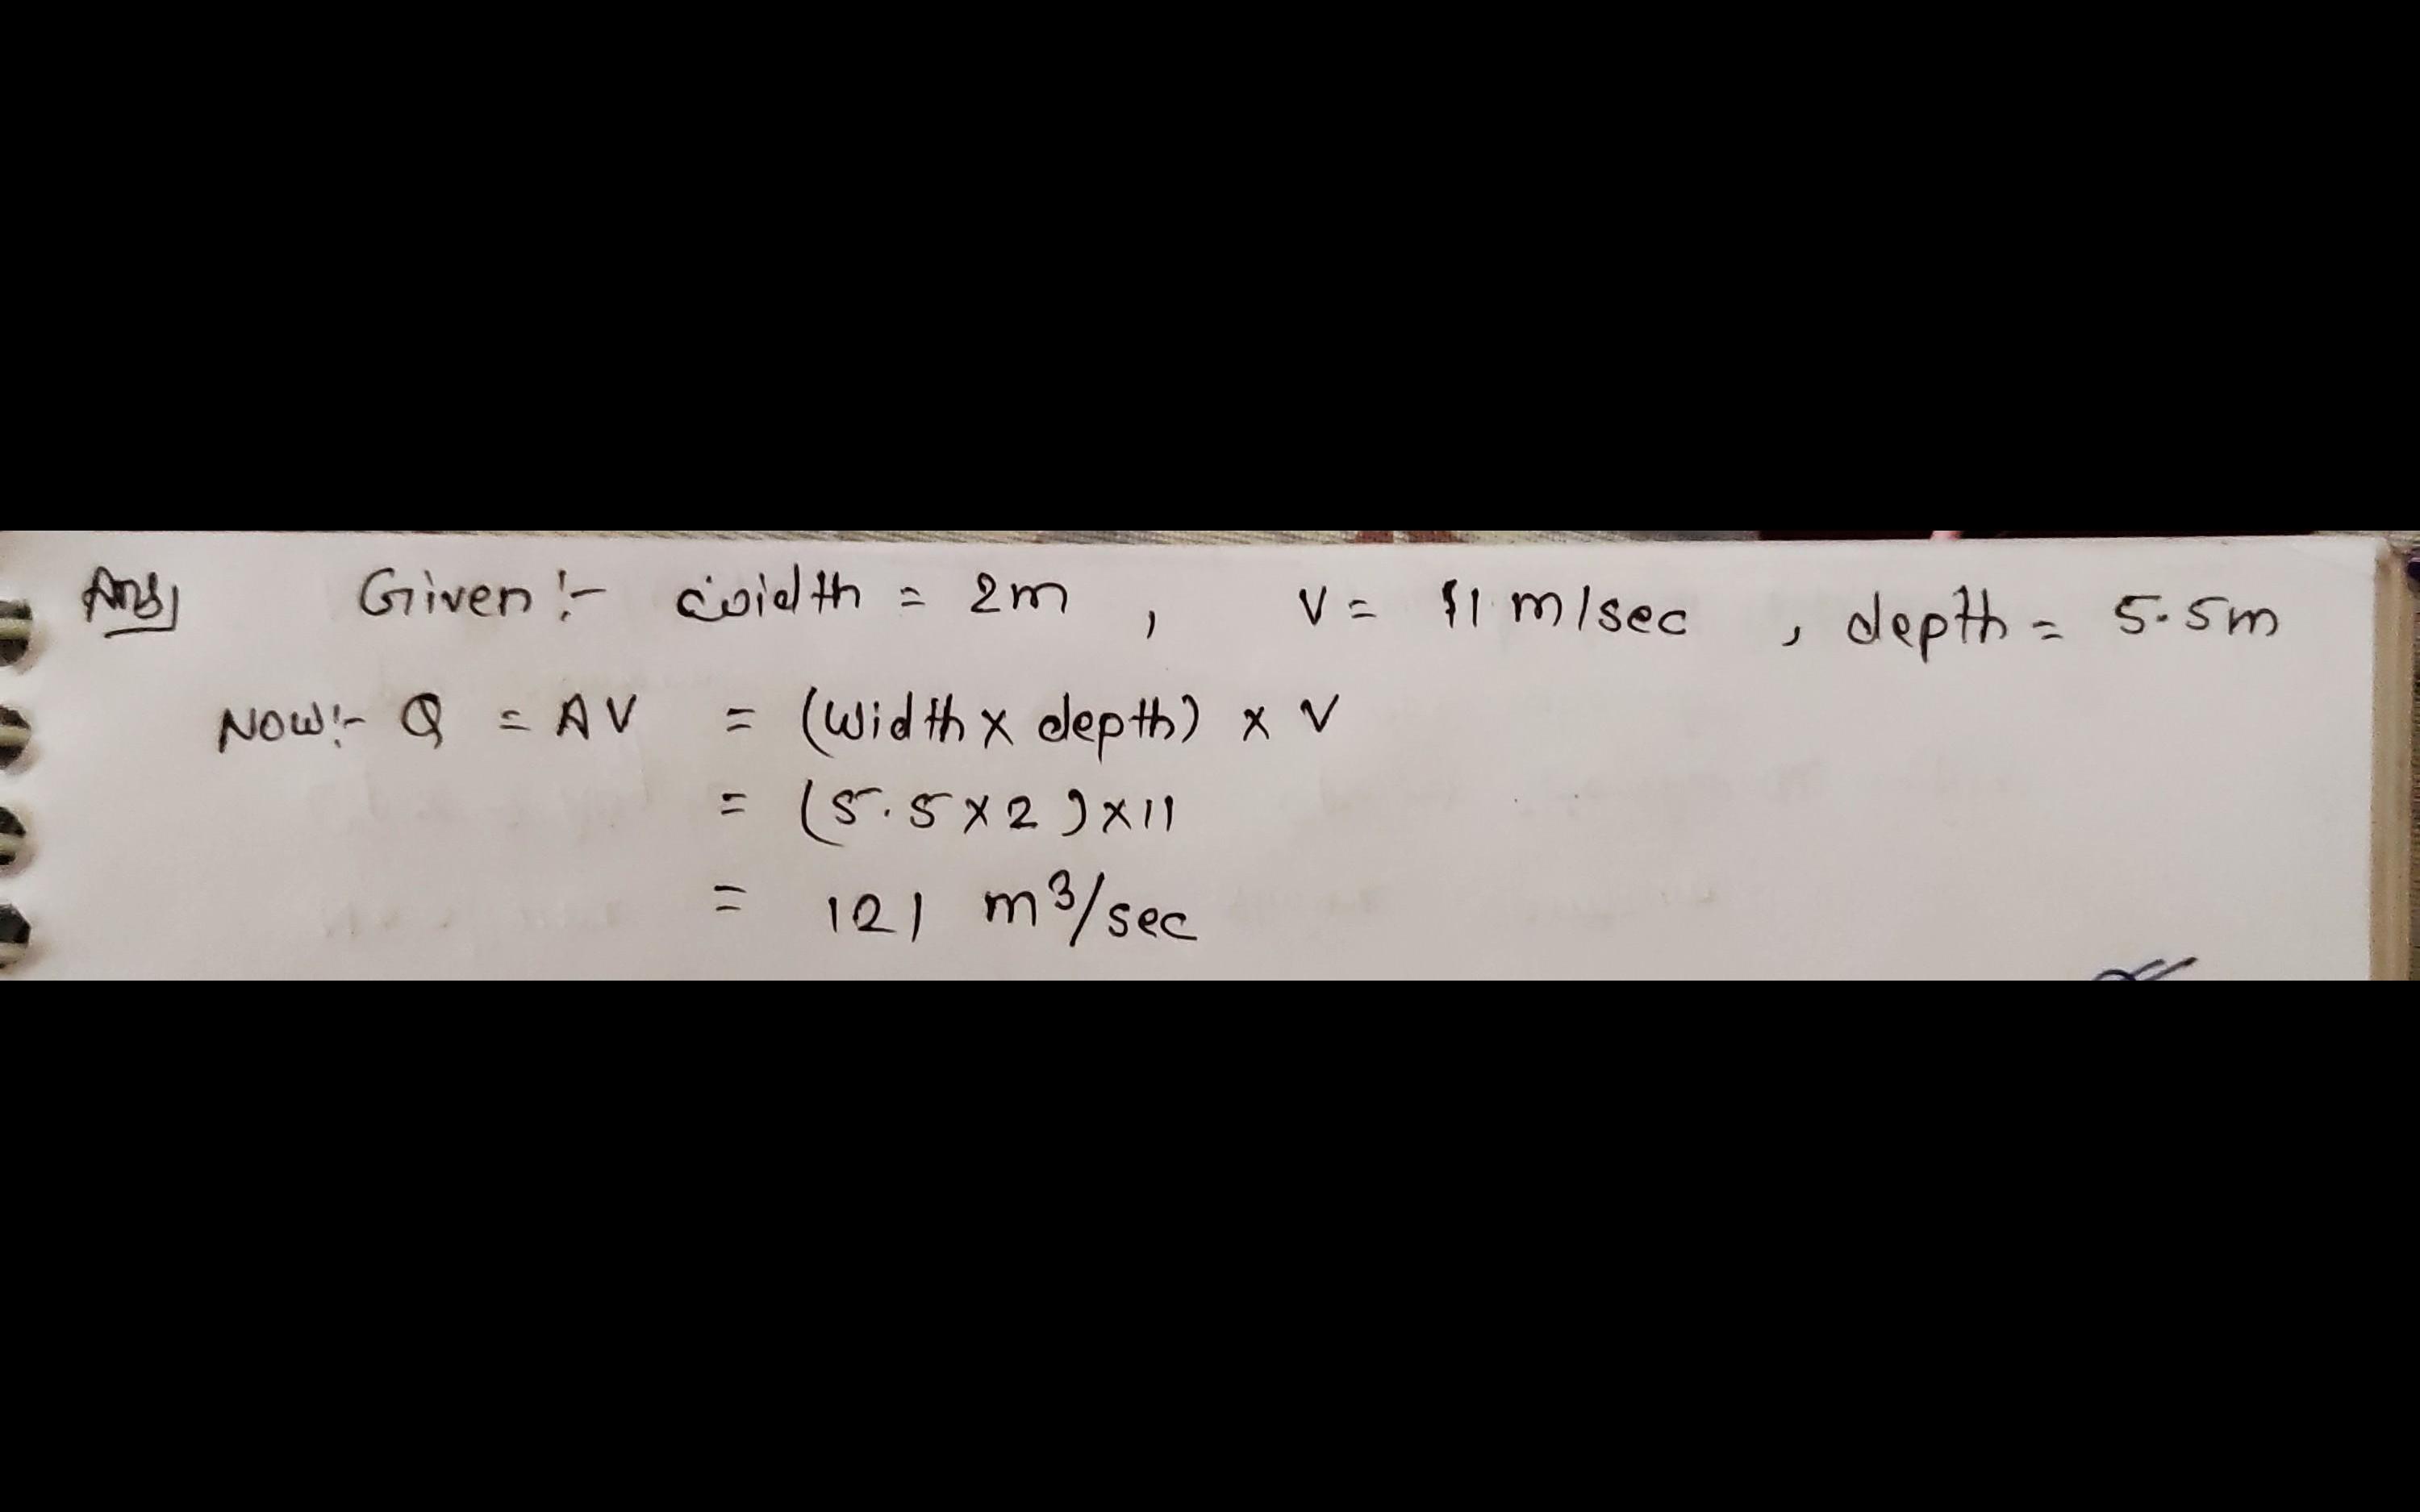 Ans, Given:- width = 2m , V = 11 m/sec , depth = 5.5m
Now:- Q = AV = (Width x depth) x V
= (5.5 x 2) x 11
= 121 m³/sec